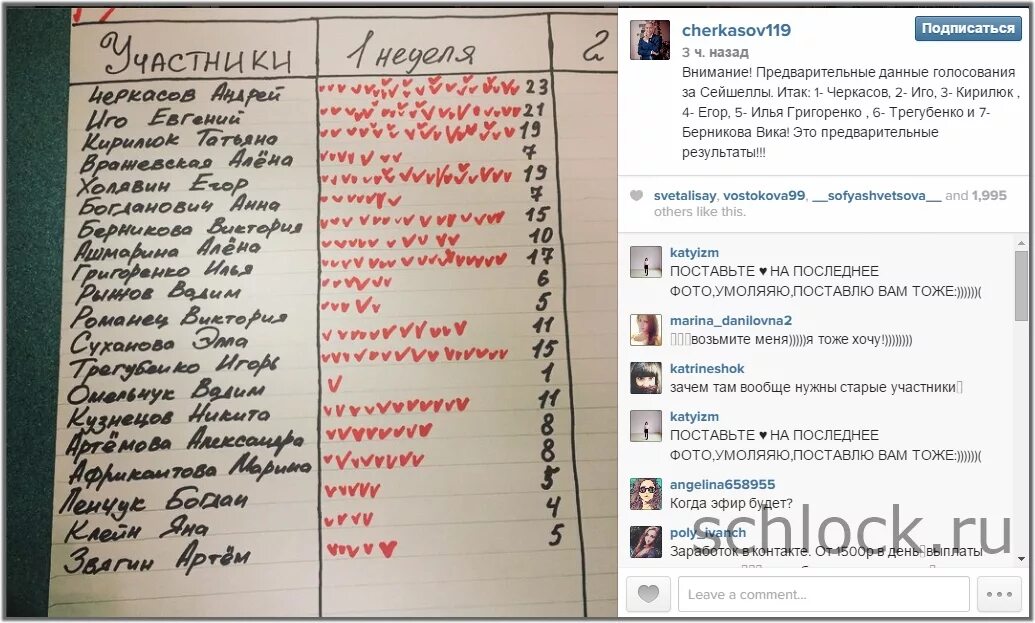 Участники 1 неделя 2
Черкасов Андрей 23
Иго Евгений 21
Кирилюк Татьяна 19
Вражевская Алёна 7
Холявин Егор 19
Богданович Анна 7
Берникова Виктория 15
Ашмарина Алёна 10
Григоренко Илья 17
Рыжов Вадим 6
Романец Виктория 5
Суханова Элла 11
Трегубенко Игорь 15
Омельчук Вадим 1
Кузнецов Никита 11
Артёмова Александра 8
Африкантова Марина 8
Ленчук Богдан 5
Клейн Яна 4
Звягин Артём 5
cherkasov119
Подписаться
3 ч. назад
Внимание! Предварительные данные голосования
за Сейшеллы. Итак: 1- Черкасов, 2- Иго, 3- Кирилюк ,
4- Егор, 5- Илья Григоренко , 6- Трегубенко и 7-
Берникова Вика! Это предварительные
результаты!!!
svetalisay, vostokova99, __sofyashvetsova__ and 1,995
others like this.
katyizm
ПОСТАВЬТЕ ♥ НА ПОСЛЕДНЕЕ
ФОТО,УМОЛЯЯЮ,ПОСТАВЛЮ ВАМ ТОЖЕ:))))))(
marina_danilovna2
возьмите меня)))))я тоже хочу!))))))))
katrineshok
зачем там вообще нужны старые участники
katyizm
ПОСТАВЬТЕ ♥ НА ПОСЛЕДНЕЕ
ФОТО,УМОЛЯЯЮ,ПОСТАВЛЮ ВАМ ТОЖЕ:))))))(
angelina658955
Когда эфир будет?
poly_ivanch
Заработок в контакте. От 1500р в день выплаты
schlock.ru
Leave a comment...